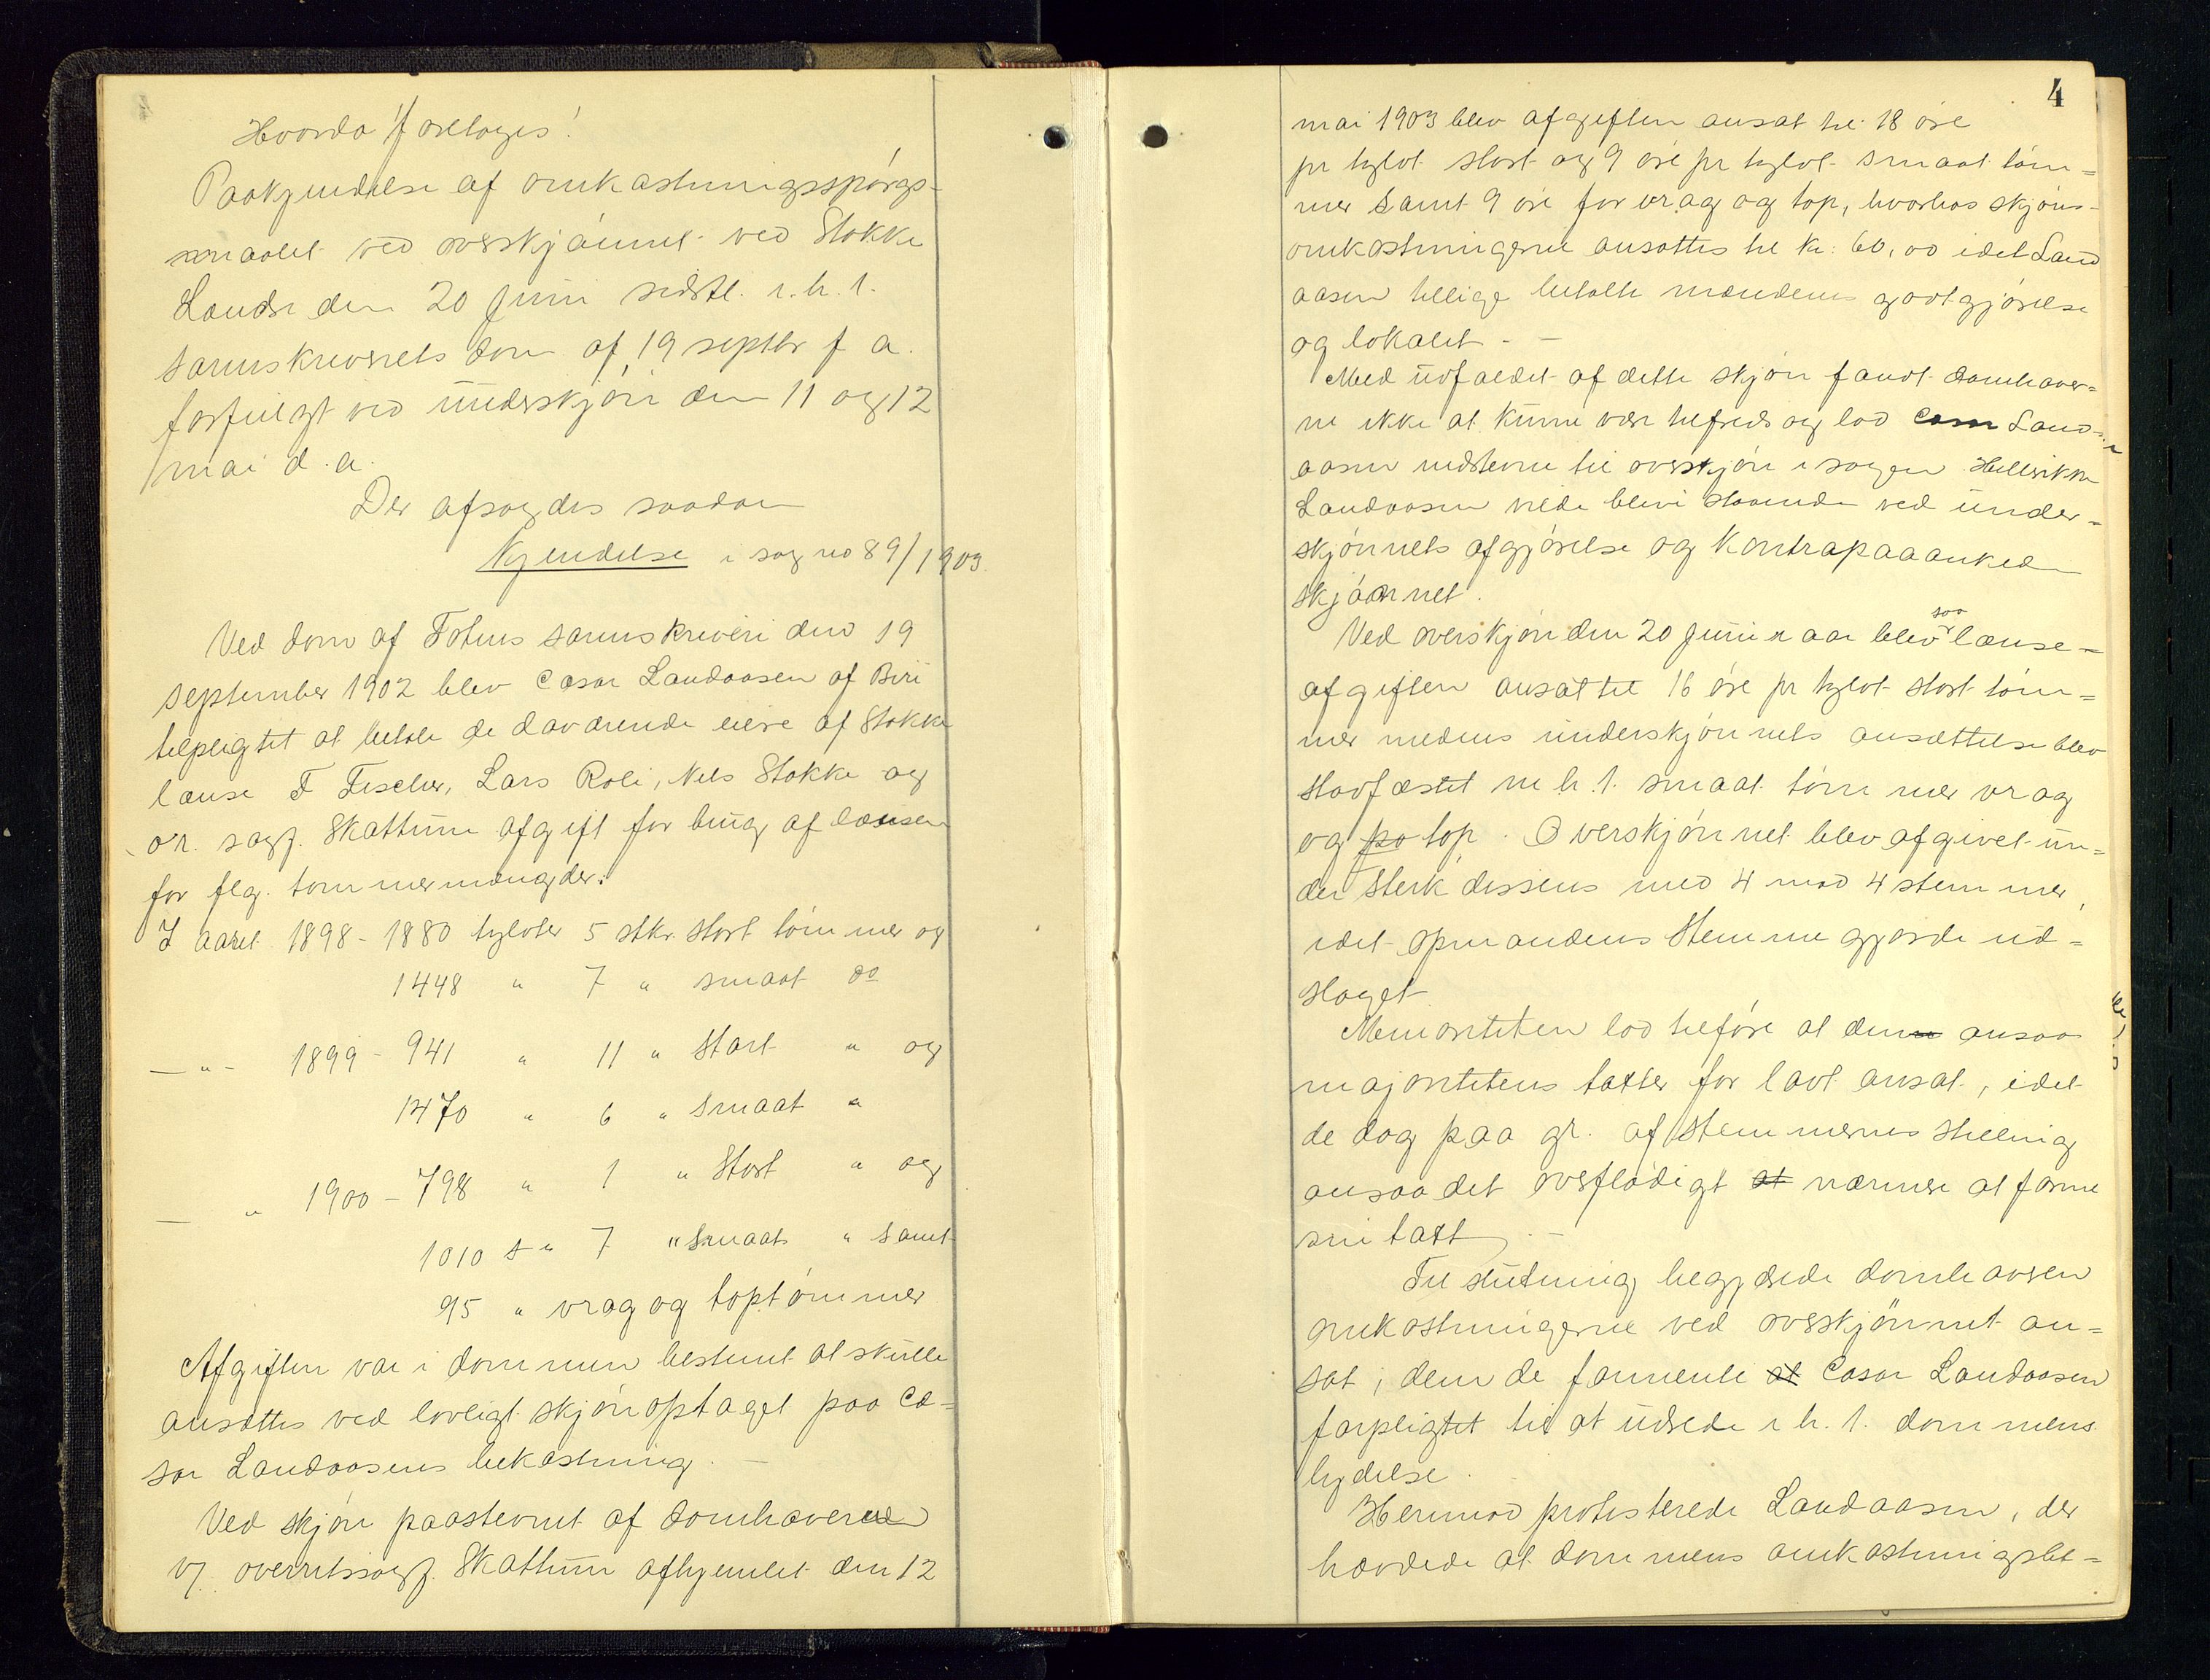 Hvorda foretoges!
Paakjendelse af omkastningsspørgs-
maalet ved overskjønnet ved Stokke
Landse den 20 juni sidstl. i. h. t.
sorenskriverets dom af 19 septbr f a.
forfulgt ved underskjøn den 11 og 12
mai d. a.
Der afsagdes saadan
Kjendelse i sag no 89/1903.
Ved dom af Totens sorenskriveri den 19
september 1902 blev Cæsar Landaasen af Biri
tilpligtet at betale de daværende eiere af Stokke
lænse F Fischer, Lars Roli, Nels Stokke og
o.r. sagf. Skattum afgift for brug af lænsen
for flg. tømmermængder:
I aaret 1898 - 1880 tylvter 5 stkr. stort tømmer og
1448 " 7 " smaat do
— " - 1899 - 941 " 11 " stort " og
1470 " 6 " smaat "
— " 1900 - 798 " 1 " stort " og
1010 " 7 " smaat " samt
95 " vrag og toptømmer
Afgiften var i dommen bestemt at skulle
ansættes ved lovligt skjøn optaget paa Cæ-
sar Landaasens bekostning. —
Ved skjøn paastevnt af domhaverne
v/ overretssagf. Skattum afhjemlet den 12
4
mai 1903 blev afgiften ansat til 18 øre
pr tylvt stort og 9 øre pr tylvt smaat tøm=
mer samt 9 øre for vrag og top, hvorhos skjøns-
omkostningerne ansattes til kr. 60,00 idet Land
aasen tillige betalte mændenes godtgjørelse
og lokalet. —
Med udfaldet af dette skjøn fandt domhaver=
ne ikke at kunne være tilfreds og lod Cæsar Land-
aasen indstevne til overskjøn i sagen
Landaasen vilde blive staaende ved under=
skjønnets afgjørelse og kontrapaaanked
skjønnet.
Ved overskjøn den 20 juni n aar blev saa lænse=
afgiften ansat til 16 øre pr tylvt stort tøm=
mer medens underskjønnets ansættelse blev
stadfæstet m. h. t. smaat tømmer vrag
og po top. Overskjønnet blev afgivet un=
der sterk dissens med 4 mod 4 stemmer,
idet opmandens stemme gjorde ud=
slaget.
Menoriteten lod tilføre at den ansaa
majoritetens takster for lavt ansat, idet
de dog paa gr. af stemmernes stilling
ansaa det overflødigt at nærmere at forme
sin takst. —
Til slutning begjærede domhaveren
omkostningerne ved overskjønnet an=
sat, dem de formente at Cæsar Landaasen
forpligtet til at udrede i h. t. dommens
lydelse.
Herimod protesterede Landaasen, der
hævdede at dommens omkostningsbe=